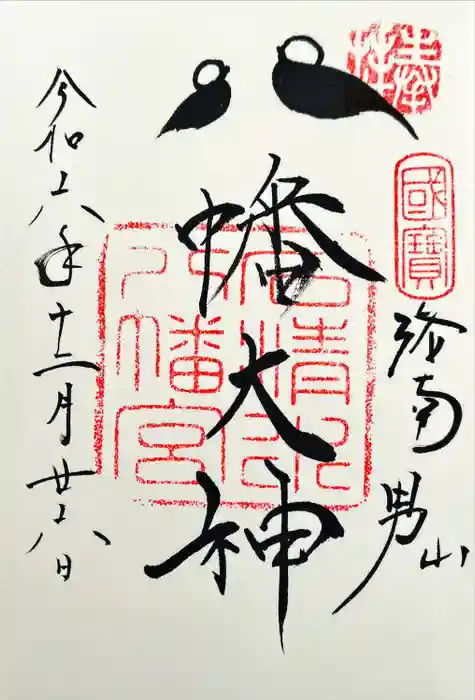 奉拝
國寶
洛南
男山
八幡大神
石清水
八幡宮
令和六年十二月廿六日